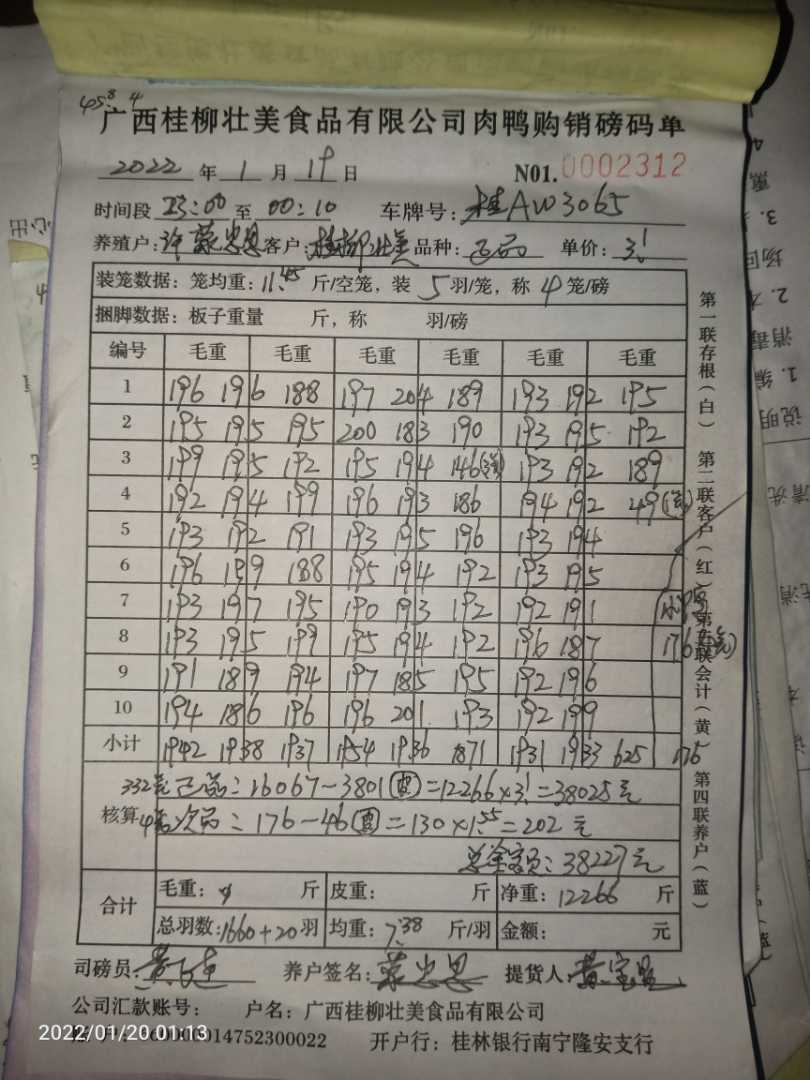 45.8 4
广西桂柳壮美食品有限公司肉鸭购销磅码单
2022 年 1 月 19 日 N01.0002312
时间段 23:00 至 00:10 车牌号: 桂AW3065
养殖户: 许蒙忠恩 客户: 桂柳壮美 品种: 正品 单价: 3.1
装笼数据: 笼均重: 11.45 斤/空笼, 装 5 羽/笼, 称 4 笼/磅
捆脚数据: 板子重量 斤, 称 羽/磅
编号 毛重 毛重 毛重 毛重 毛重 毛重
1 196 196 188 197 204 189 193 192 195
2 195 195 195 200 183 190 193 195 192
3 199 195 192 195 194 146 193 192 189
4 192 194 199 196 193 186 194 192 49
5 193 192 191 193 195 196 193 194
6 196 199 188 195 194 192 193 195
7 193 197 195 190 193 192 192 191
8 193 195 199 195 194 192 196 187 176
9 191 189 194 197 185 195 192 196
10 194 186 196 196 201 193 192 199
小计 1942 1938 1937 1954 1936 1871 1931 1933 625 176
核算
332笼正品: 16067-3801(笼)=12266×3.1=38025元
4笼次品: 176-46(笼)=130×1.55=202元
总金额: 38227元
合计 毛重: 斤 皮重: 斤 净重: 12266 斤
总羽数: 1660+20 羽 均重: 7.38 斤/羽 金额: 元
司磅员: 养户签名: 蒙忠恩 提货人:
公司汇款账号: 户名: 广西桂柳壮美食品有限公司
014752300022 开户行: 桂林银行南宁隆安支行
第一联存根(白) 第二联客户(红) 第三联会计(黄) 第四联养户(蓝)
2022/01/20 01:13